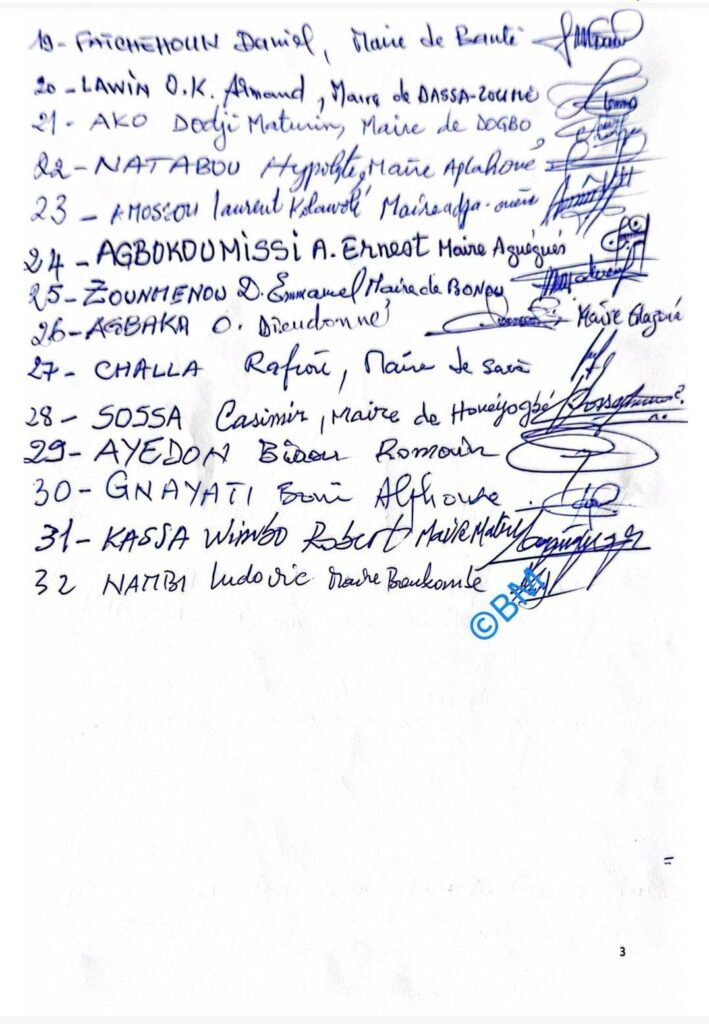 19- FATCHEHOUN Daniel, Maire de Bantè
20 - LAWIN O.K. Armand, Maire de DASSA-ZOUMÈ
21- AKO Dodji Maturin, Maire de DOGBO
22- NATABOU Hypolyte, Maire Aplahoué
23 - AMOSSOU Laurent Kolawolé Maire adja-ouèrè
24- AGBOKOUMISSI A. Ernest Maire Aguégués
25- ZOUNMENOU D. Emmanuel Maire de BONOU
26- AGBAKA O. Dieudonné Maire Glazoué
27- CHALLA Rafiou, Maire de Savè
28 - SOSSA Casimir, Maire de Houéyogbé
29- AYEDON Romain
30- GNAYATI Boni Alphonse
31- KASSA Wimbo Robert Maire Matéri
32 NAMBI Ludovic Maire Boukombé
©BM
=
3